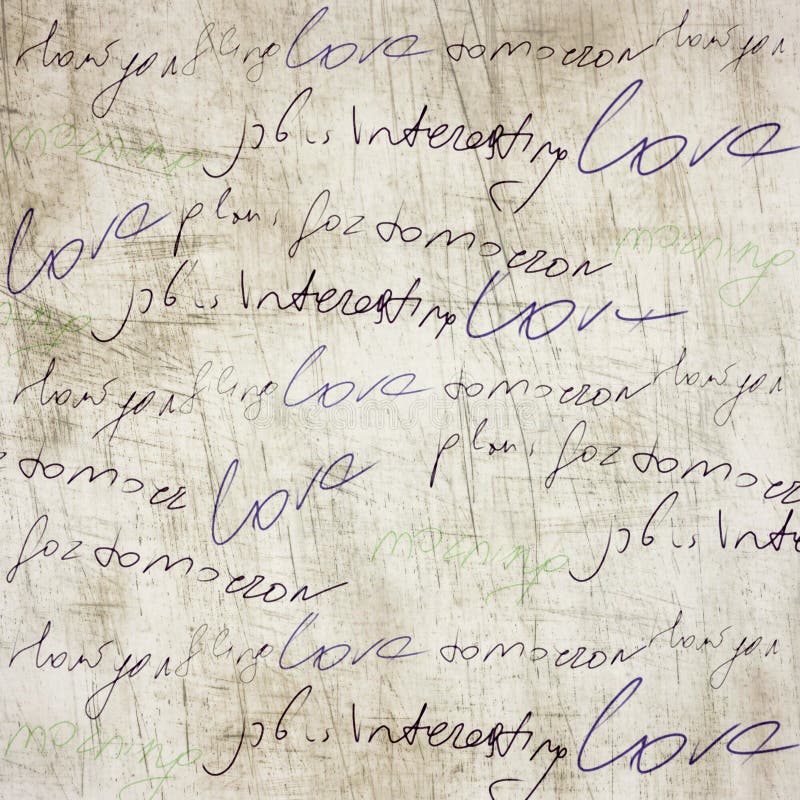 how you fling love tomorrow how you
morning job is Interesting love
love plans for tomorrow morning
job is Interesting love
how you fling love tomorrow how you
plans for tomorrow
tomorr love
morning job is Inte
for tomorrow
how you fling love tomorrow how you
morning job is Interesting love